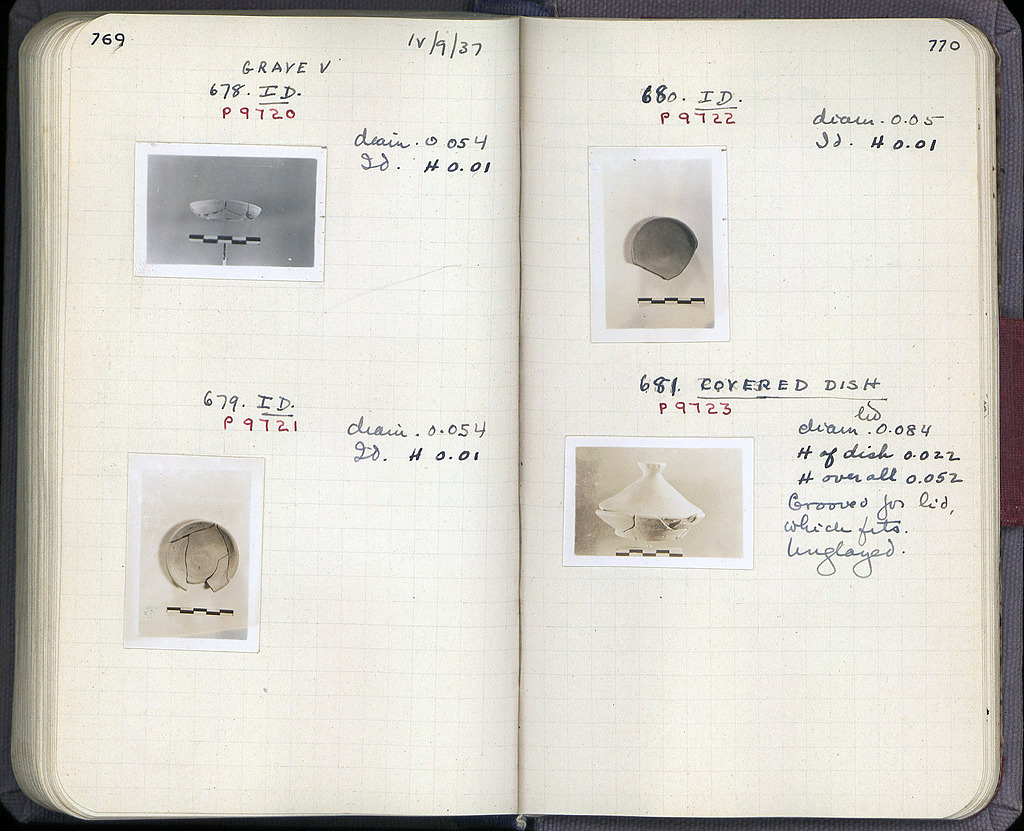 769
IV/9/37
GRAVE V
678. ID.
P 9720
diam. 0.054
Id. H 0.01
679. ID.
P 9721
diam. 0.054
Id. H 0.01
770
680. ID.
P 9722
diam. 0.05
Id. H 0.01
681. COVERED DISH
P 9723
lid
diam. 0.084
H of dish 0.022
H over all 0.052
Grooved for lid,
which fits.
Unglazed.